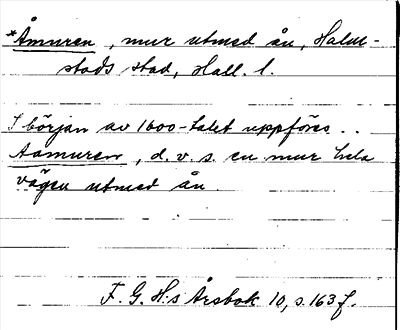 *Åmuren, mur utmed ån, Halm-
stads stad, Hall. l.
I början av 1600-talet uppföres ..
Aamuren, d.v.s. en mur hela
vägen utmed ån.
F. G. H:s Årsbok 10, s. 163 f.